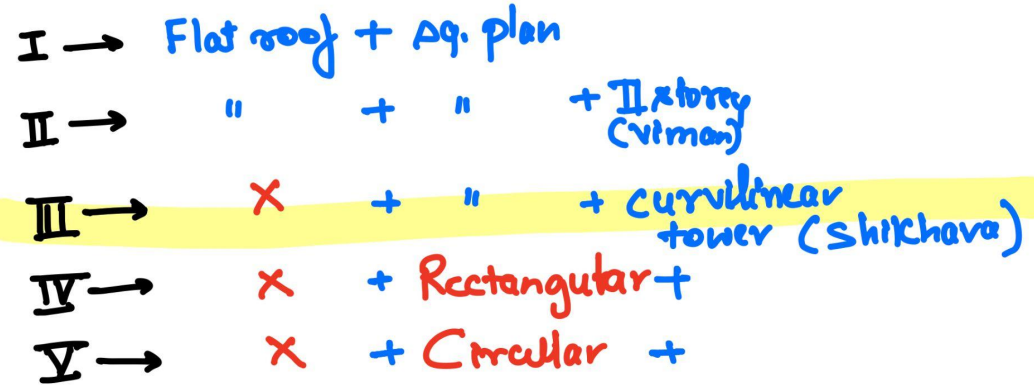 I → Flat roof + sq. plan
II → " + " + II storey
(viman)
III → × + " + curvilinear
tower (shikhara)
IV → × + Rectangular +
V → × + Circular +